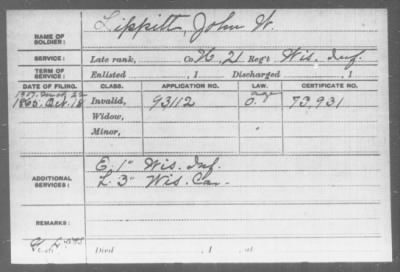 NAME OF SOLDIER: Lippitt, John W.
SERVICE: Late rank, Co. H, 21 Reg't Wis. Inf.
TERM OF SERVICE: Enlisted , 1 Discharged , 1
DATE OF FILING. CLASS. APPLICATION NO. LAW. CERTIFICATE NO.
1865. Oct. 18 Invalid, 93112 O. 73,931
Widow,
Minor, "
ADDITIONAL SERVICES: E. 1" Wis. Inf.
L. 3" Wis. Cav.
REMARKS:
Died , 1 , at